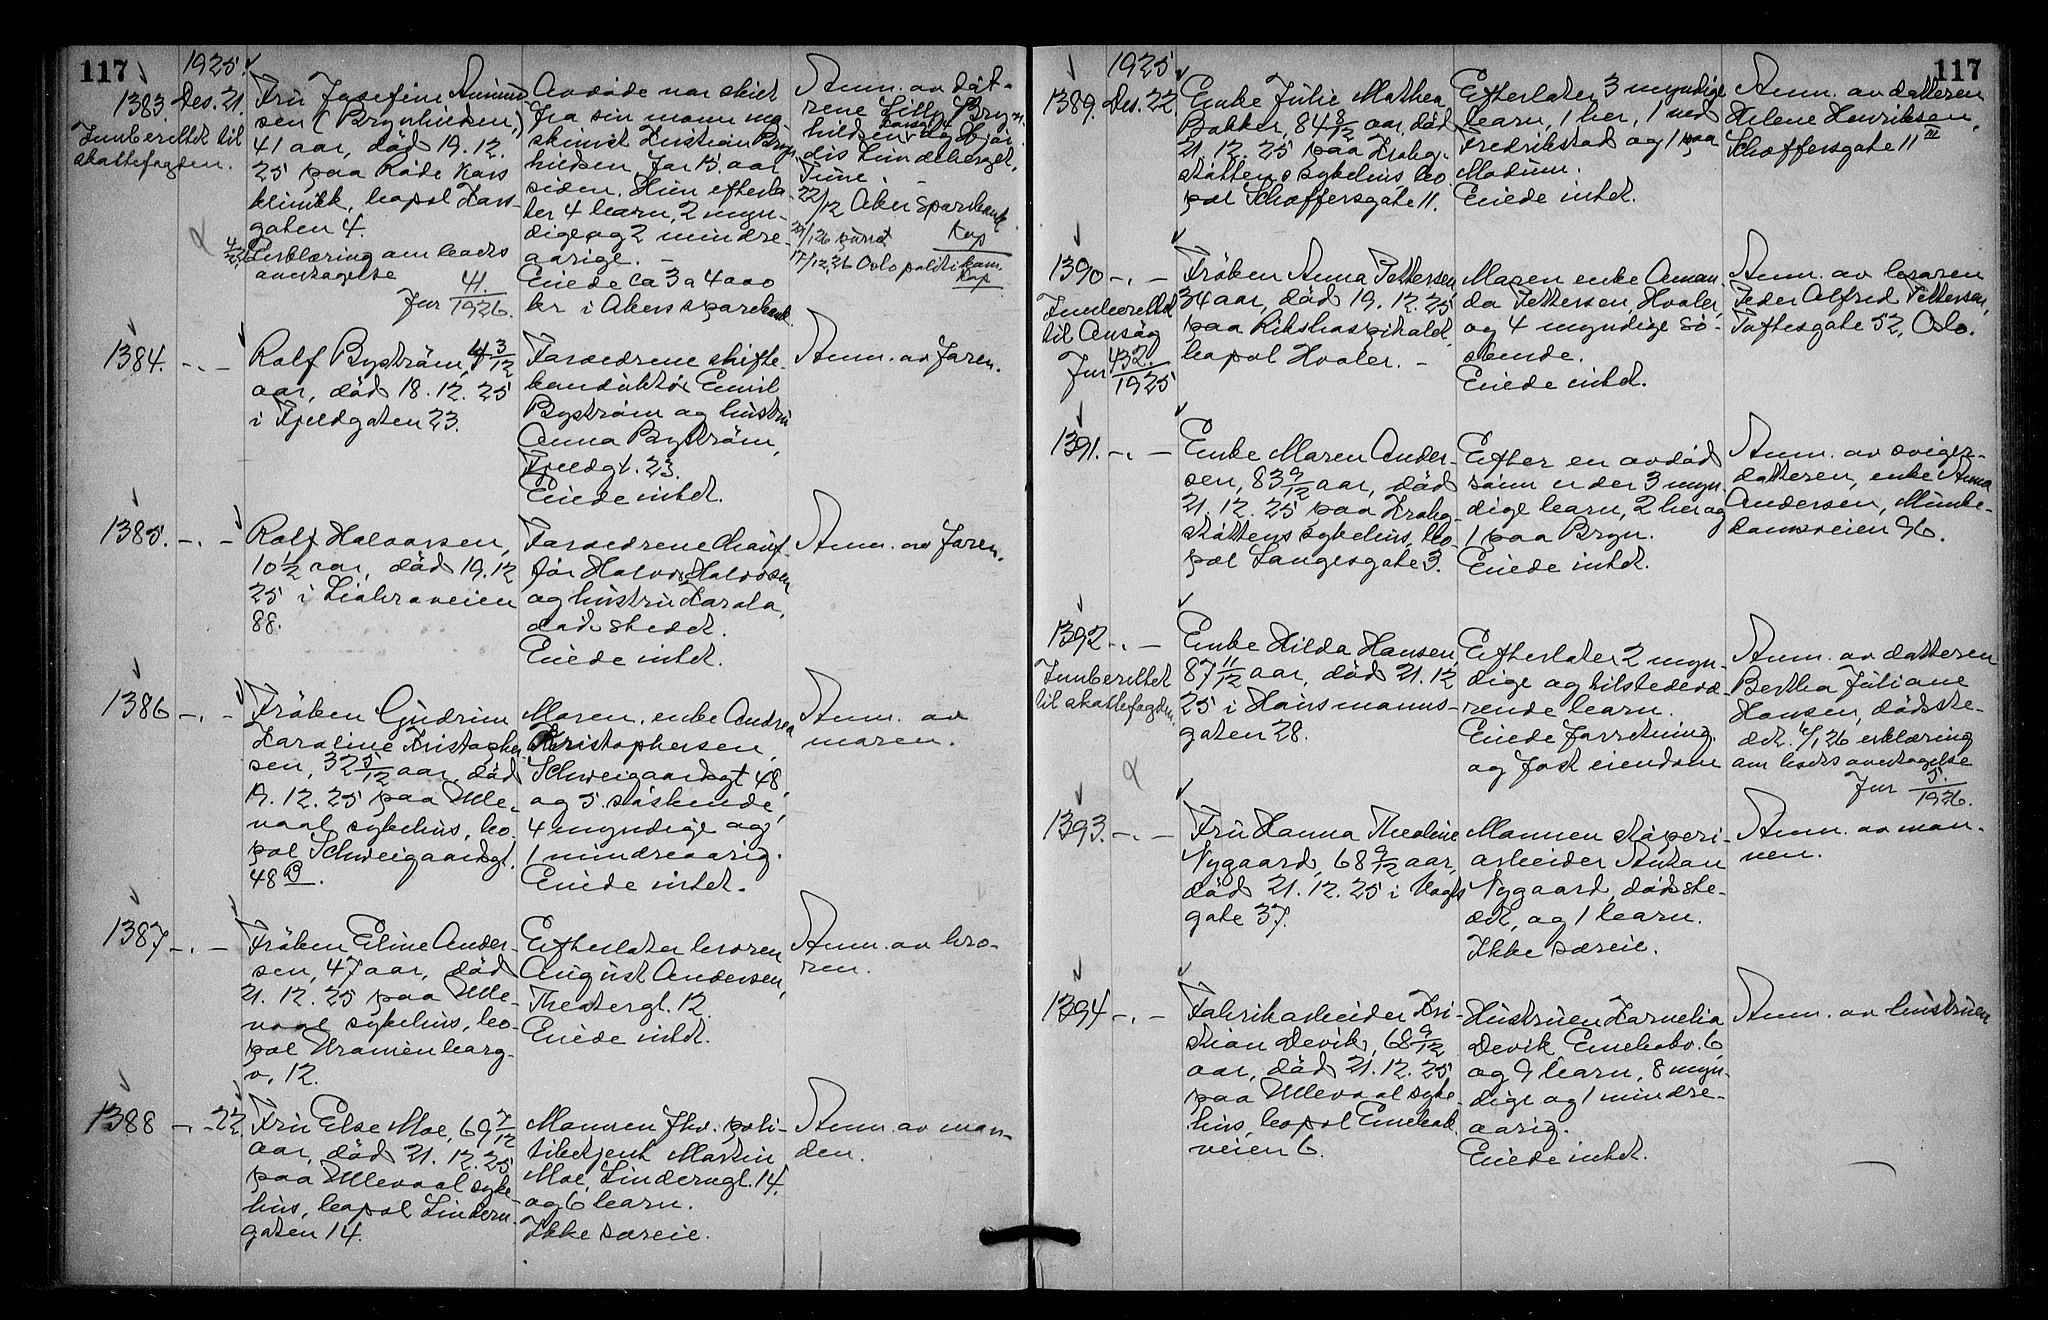 117
1925.
1383. Des. 21.
Innberettet til
skattefogden.
Fru Josefine Amund
sen (Brynhildsen,)
41 aar, död 19.12.
25 paa Röde Kors
klinikk, bopæl Kors-
gaten 4.
Erklæring om boets
overtagelse
Jnr 41./1926.
Avdöde var skilt
fra sin mann ma
skinist Kristian Bryn
hildsen for 15 aar
siden. Hun efterla-
ter 4 barn, 2 myn-
dige og 2 mindre-
aarige. –
Eiede ca 3 a 4000
kr i Akers sparebank.
Anm. av döt-
rene Lilly Bryn
hildsen og Hjör
dis Lundeberget,
Tune. –
22/12 Aker Sparebank
Kop
17/12.26 Oslo politikam.
Kop
1384. -.-
Rolf Byström, 4 3/12
aar, död 18.12.25
i Fjeldgaten 23.
Foreldrene skifte-
konduktör Emil
Byström og hustru
Anna Byström,
Fjeldgt. 23.
Eiede intet.
Anm. av faren.
1385. -.-
Rolf Halvorsen,
10 1/2 aar, död 19.12
25 i Liabroveien
88.
Foreldrene chauf-
för Halvor Halvorsen
og hustru Karola,
dödsstedet.
Eiede intet.
Anm. av faren.
1386 -.-
Fröken Gudrun
Karoline Kristopher
sen, 32 5/12 aar, död
19.12.25 paa Ulle-
vaal sykehus, bo
pæl Schweigaardsgt.
48 B.
Moren, enke Andrea
Kristophersen,
Schweigaardsgt 48,
og 5 söskende,
4 myndige og
1 mindreaarig.
Eiede intet.
Anm. av
moren.
1387 -.-
Fröken Eline Ander-
sen, 47 aar, död
21.12.25 paa Ulle-
vaal sykehus, bo-
pæl Uranienborg-
v. 12.
Efterlater broren
August Andersen,
Theatergt. 12.
Eiede intet.
Anm. av bro-
ren.
1388 -.- 22.
Fru Else Moe, 69 7/12
aar, död 21.12.25
paa Ullevaal syke-
hus, bopæl Lindern-
gaten 14.
Mannen fhv. poli-
tibetjent Martin
Moe, Linderngt. 14.
og 6 barn.
Ikke særeie.
Anm. av man-
den.
117
1925
1389. Des. 22.
Enke Julie Mathea
Bakker, 84 8/12 aar, död
21.12.25 paa Krohg-
stöttens sykehus, bo
pæl Schæffersgate 11.
Efterlater 3 myndige
barn, 1 her, 1 ved
Fredrikstad og 1 paa
Modum.
Eiede intet.
Anm. av datteren
Helene Henriksen,
Schæffersgate 11 III
1390 -.-
Innberettet
til Ansög
Jnr 432./1925
Fröken Anna Pettersen
34 aar, död 19.12.25
paa Rikshospitalet,
bopæl Hvaler. –
Moren enke Aman
da Pettersen, Hvaler,
og 4 myndige sö-
skende.
Eiede intet.
Anm. av broren
Peder Alfred Pettersen,
Toftesgate 52, Oslo.
1391. -.-
Enke Maren Ander-
sen, 83 9/12 aar, död
21.12.25 paa Krohg-
stöttens sykehus, bo-
pæl Langesgate 3.
Efter en avdöd
sönn er der 3 myn-
dige barn, 2 her og
1 paa Bryn.
Eiede intet.
Anm. av sviger-
datteren, enke Anna
Andersen, Munke-
damsveien 96.
1392 -.-
Innberettet
til skattefogden,
Enke Hilda Hansen,
87 11/12 aar, död 21.12
25 i Hausmanns-
gaten 28.
Efterlater 2 myn-
dige og tilstedevæ-
rende barn.
Eiede forretning
og fast eiendom
Anm. av datteren
Bertha Juliane
Hansen, dödsste-
det. 6/1 26 erklæring
om boets overtagelse
Jnr 5./1926.
1393. -.-
Fru Hanna Theoline
Nygaard, 68 9/12 aar,
död 21.12.25 i Vogts
gate 37.
Mannen stöperi-
arbeider Anton
Nygaard, dödsste-
det, og 1 barn.
Ikke særeie.
Anm. av man-
nen.
1394 -.-
Fabrikarbeider Kri-
stian Devik, 68 9/12
aar, död 21.12.25
paa Ullevaal syke-
hus, bopæl Enebak
veien 6.
Hustruen Kornelia
Devik Enebakv. 6,
og 9 barn, 8 myn-
dige og 1 mindre-
aarig.
Eiede intet.
Anm. av hustruen